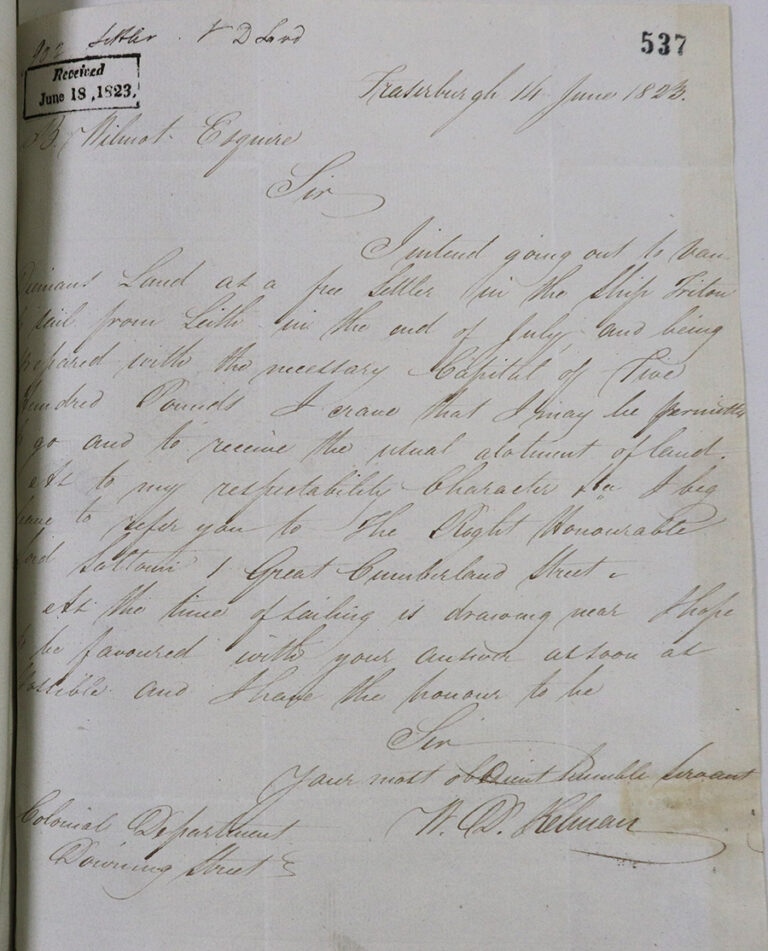 537
902 Settler V D Land
Received
June 18, 1823.
Fraserburgh 14 June 1823.
Wilmot Esquire
Sir
I intend going out to Van
Diemans Land as a free Settler in the Ship Triton
to sail from Leith in the end of July, and being
prepared with the necessary Capital of Five
Hundred Pounds I crave that I may be permitted
to go and to receive the usual alotment of land.
As to my respectability Character &c I beg
leave to refer you to The Right Honourable
Lord Saltoun 1 Great Cumberland Street.
As the time of sailing is drawing near I hope
to be favoured with your answer as soon as
Possible and I have the honour to be
Sir
Your most obedient humble servant
W. D. Kelman
Colonial Department
Downing Street